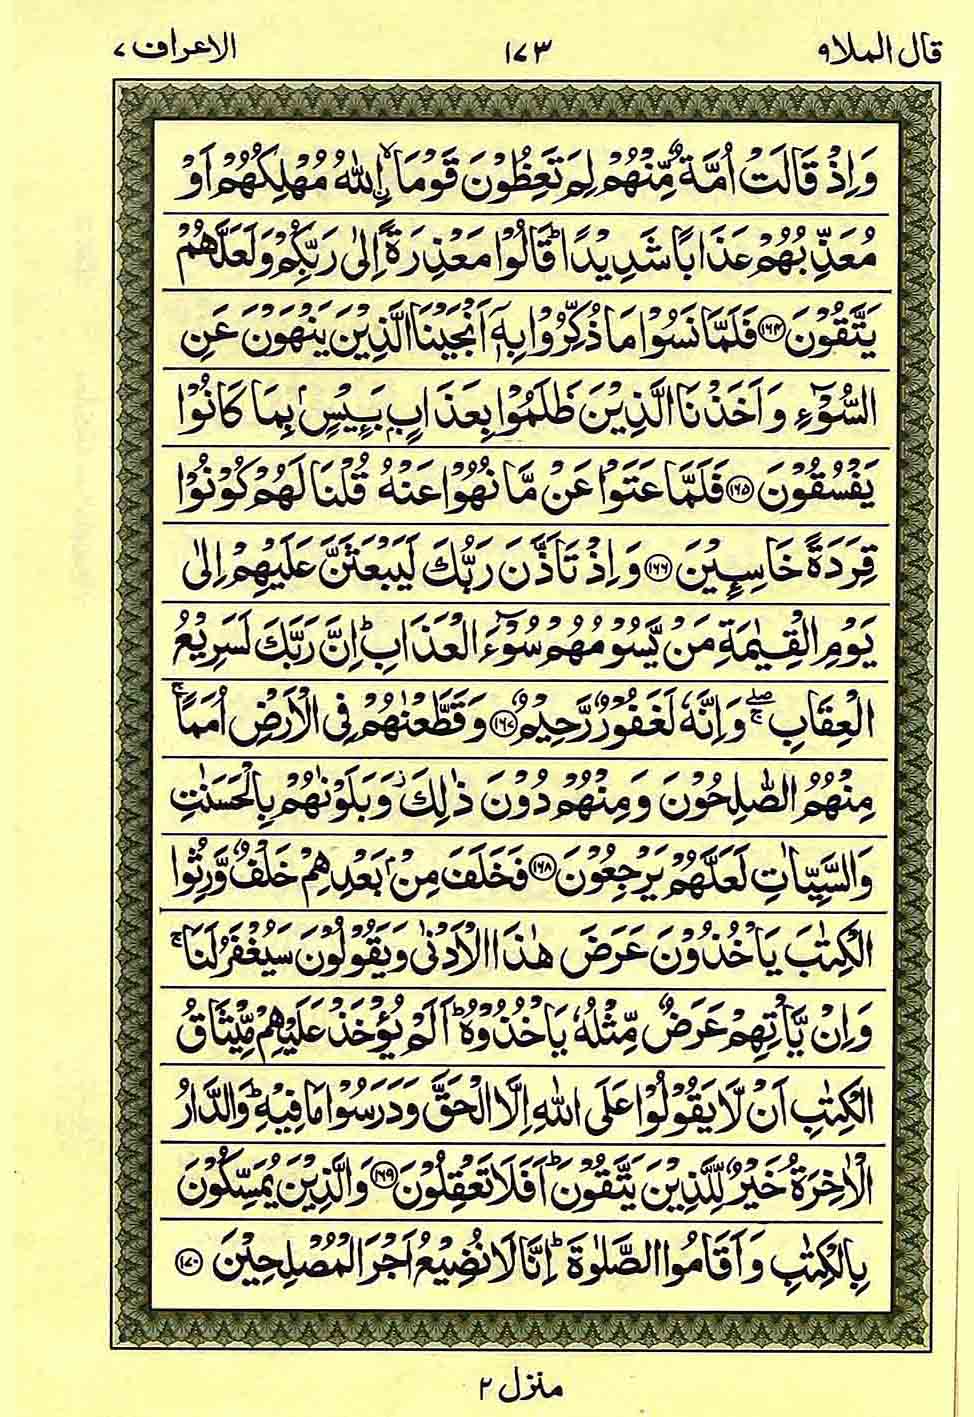 قال الملا ٩
١٧٣
الاعراف ٧
وَاِذْ قَالَتْ اُمَّةٌ مِّنْهُمْ لِمَ تَعِظُوْنَ قَوْمَا ۙ اِۨللّٰهُ مُهْلِكُهُمْ اَوْ
مُعَذِّبُهُمْ عَذَابًا شَدِيْدًا ؕ قَالُوْا مَعْذِرَةً اِلٰى رَبِّكُمْ وَلَعَلَّهُمْ
يَتَّقُوْنَ ﴿١٦٤﴾ فَلَمَّا نَسُوْا مَا ذُكِّرُوْا بِهٖۤ اَنْجَيْنَا الَّذِيْنَ يَنْهَوْنَ عَنِ
السُّوْٓءِ وَاَخَذْنَا الَّذِيْنَ ظَلَمُوْا بِعَذَابٍۭ بَئِيْسٍۭ بِمَا كَانُوْا
يَفْسُقُوْنَ ﴿١٦٥﴾ فَلَمَّا عَتَوْا عَنْ مَّا نُهُوْا عَنْهُ قُلْنَا لَهُمْ كُوْنُوْا
قِرَدَةً خَاسِـِٕيْنَ ﴿١٦٦﴾ وَاِذْ تَاَذَّنَ رَبُّكَ لَيَبْعَثَنَّ عَلَيْهِمْ اِلٰى
يَوْمِ الْقِيٰمَةِ مَنْ يَّسُوْمُهُمْ سُوْٓءَ الْعَذَابِ ؕ اِنَّ رَبَّكَ لَسَرِيْعُ
الْعِقَابِ ۖۚ وَاِنَّهٗ لَغَفُوْرٌ رَّحِيْمٌ ﴿١٦٧﴾ وَقَطَّعْنٰهُمْ فِى الْاَرْضِ اُمَمًا ۚ
مِنْهُمُ الصّٰلِحُوْنَ وَمِنْهُمْ دُوْنَ ذٰلِكَ ز وَبَلَوْنٰهُمْ بِالْحَسَنٰتِ
وَالسَّيِّاٰتِ لَعَلَّهُمْ يَرْجِعُوْنَ ﴿١٦٨﴾ فَخَلَفَ مِنْۢ بَعْدِهِمْ خَلْفٌ وَّرِثُوا
الْكِتٰبَ يَاْخُذُوْنَ عَرَضَ هٰذَا الْاَدْنٰى وَيَقُوْلُوْنَ سَيُغْفَرُ لَنَا ۚ
وَاِنْ يَّاْتِهِمْ عَرَضٌ مِّثْلُهٗ يَاْخُذُوْهُ ؕ اَلَمْ يُؤْخَذْ عَلَيْهِمْ مِّيْثَاقُ
الْكِتٰبِ اَنْ لَّا يَقُوْلُوْا عَلَى اللّٰهِ اِلَّا الْحَقَّ وَدَرَسُوْا مَا فِيْهِ ؕ وَالدَّارُ
الْاٰخِرَةُ خَيْرٌ لِّلَّذِيْنَ يَتَّقُوْنَ ؕ اَفَلَا تَعْقِلُوْنَ ﴿١٦٩﴾ وَالَّذِيْنَ يُمَسِّكُوْنَ
بِالْكِتٰبِ وَاَقَامُوا الصَّلٰوةَ ؕ اِنَّا لَا نُضِيْعُ اَجْرَ الْمُصْلِحِيْنَ ﴿١٧٠﴾
منزل ٢